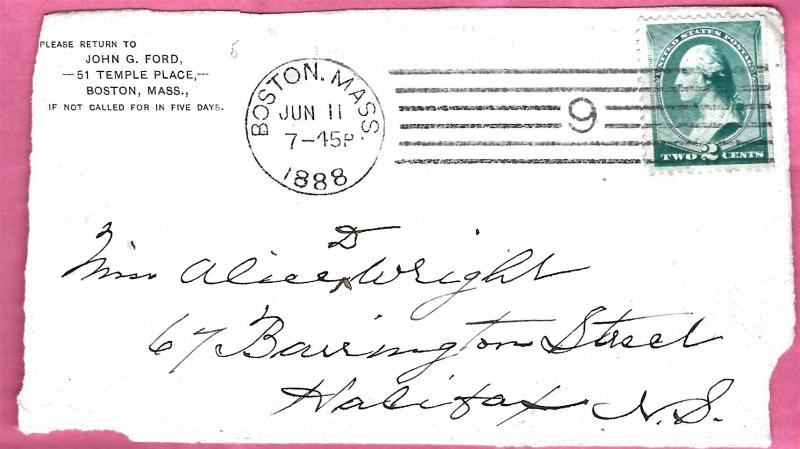 PLEASE RETURN TO
JOHN G. FORD,
—51 TEMPLE PLACE,—
BOSTON, MASS.,
IF NOT CALLED FOR IN FIVE DAYS.
5
BOSTON. MASS.
JUN 11
7-45P
1888
9
UNITED STATES POSTAGE
TWO 2 CENTS
Miss Alice D Wright
67 Barrington Street
Halifax N.S.